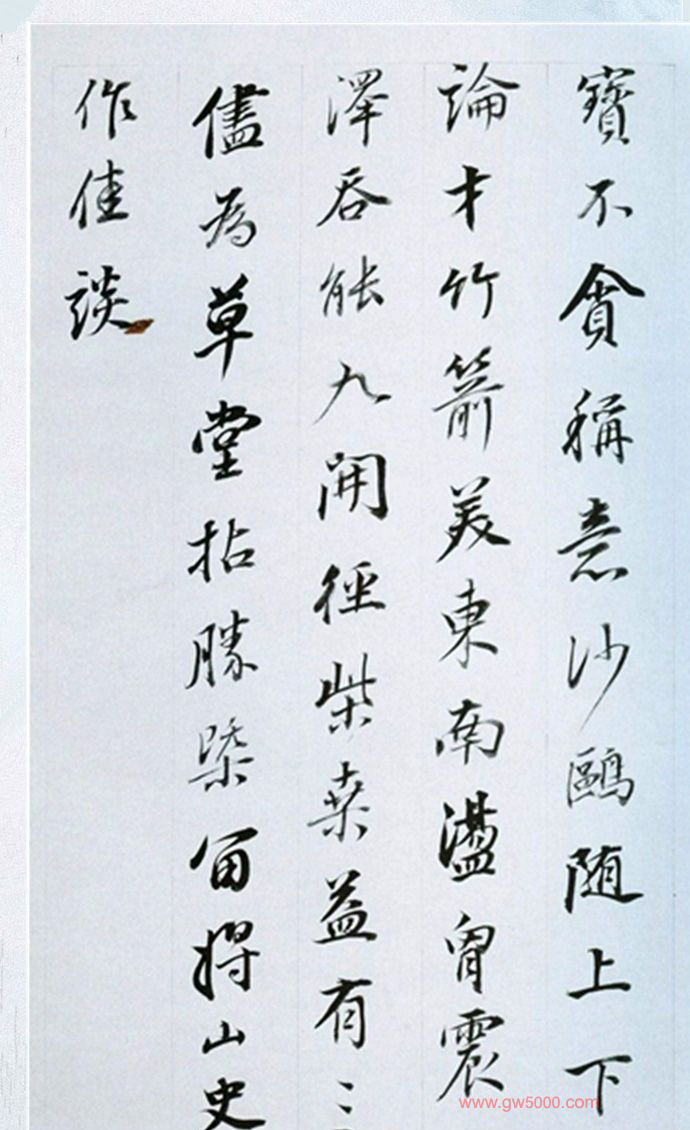 寳不貪稱意沙鷗随上下
論才竹箭美東南盪胷震
澤吞能九開徑柴桑益有三
儘為草堂拈勝槩留得山史
作佳談
www.gw5000.com